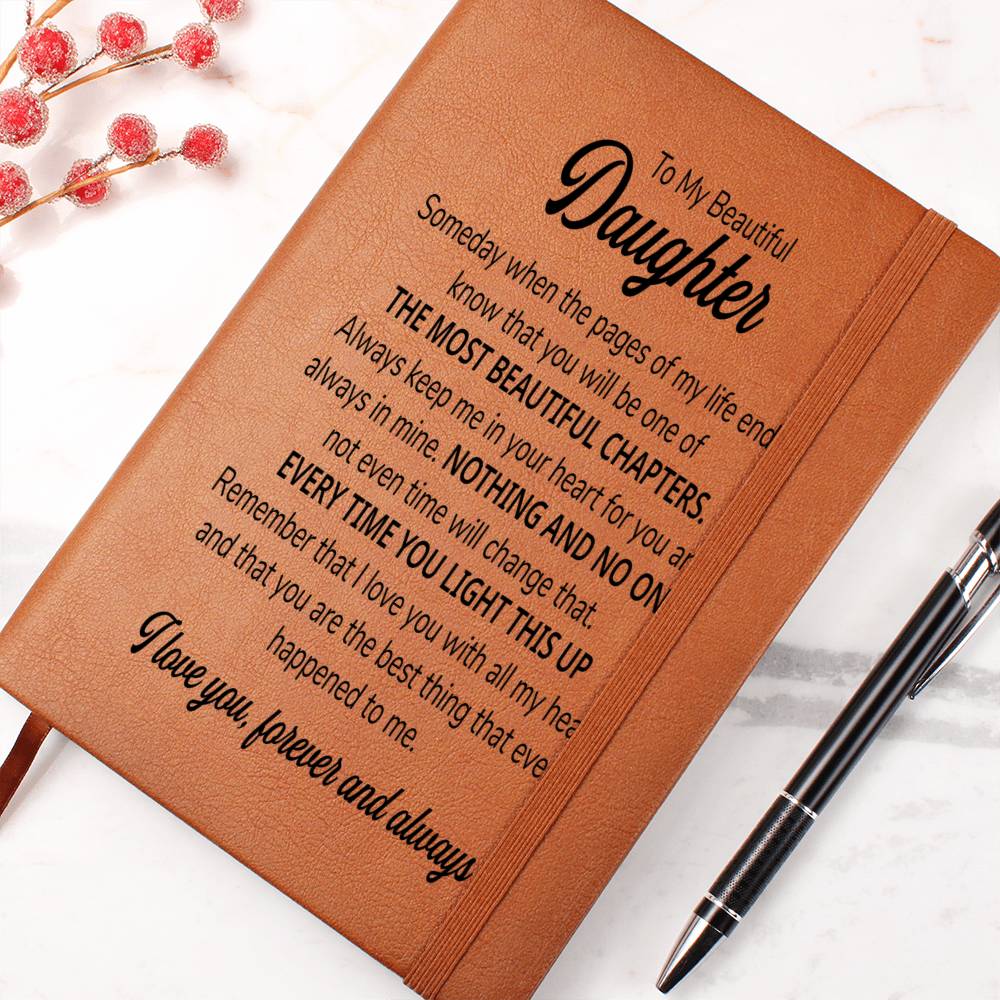 To My Beautiful
Daughter
Someday when the pages of my life end
know that you will be one of
THE MOST BEAUTIFUL CHAPTERS.
Always keep me in your heart for you ar
always in mine. NOTHING AND NO ON
not even time will change that.
EVERY TIME YOU LIGHT THIS UP
Remember that I love you with all my hea
and that you are the best thing that eve
happened to me.
I love you, forever and always